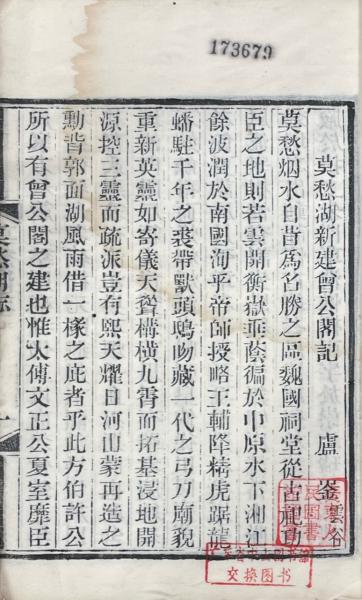 173679
莫愁湖新建曾公閣記
盧崟雲谷
莫愁烟水自昔爲名勝之區魏國祠堂從古祀功
臣之地則若雲開衡嶽垂蔭徧於中原水下湘江
餘波潤於南國洵乎帝師授略王輔降精虎踞龍
蟠駐千年之裘帶獸頭鴟吻藏一代之弓刀廟貌
重新英靈如寄儀天聳構橫九霄而拓基浸地開
源控三靈而疏派豈有熙天耀日河山蒙再造之
勳背郭面湖風雨借一椽之庇者乎此方伯許公
所以有曾公閣之建也惟太傅文正公夏室靡臣
交换图书